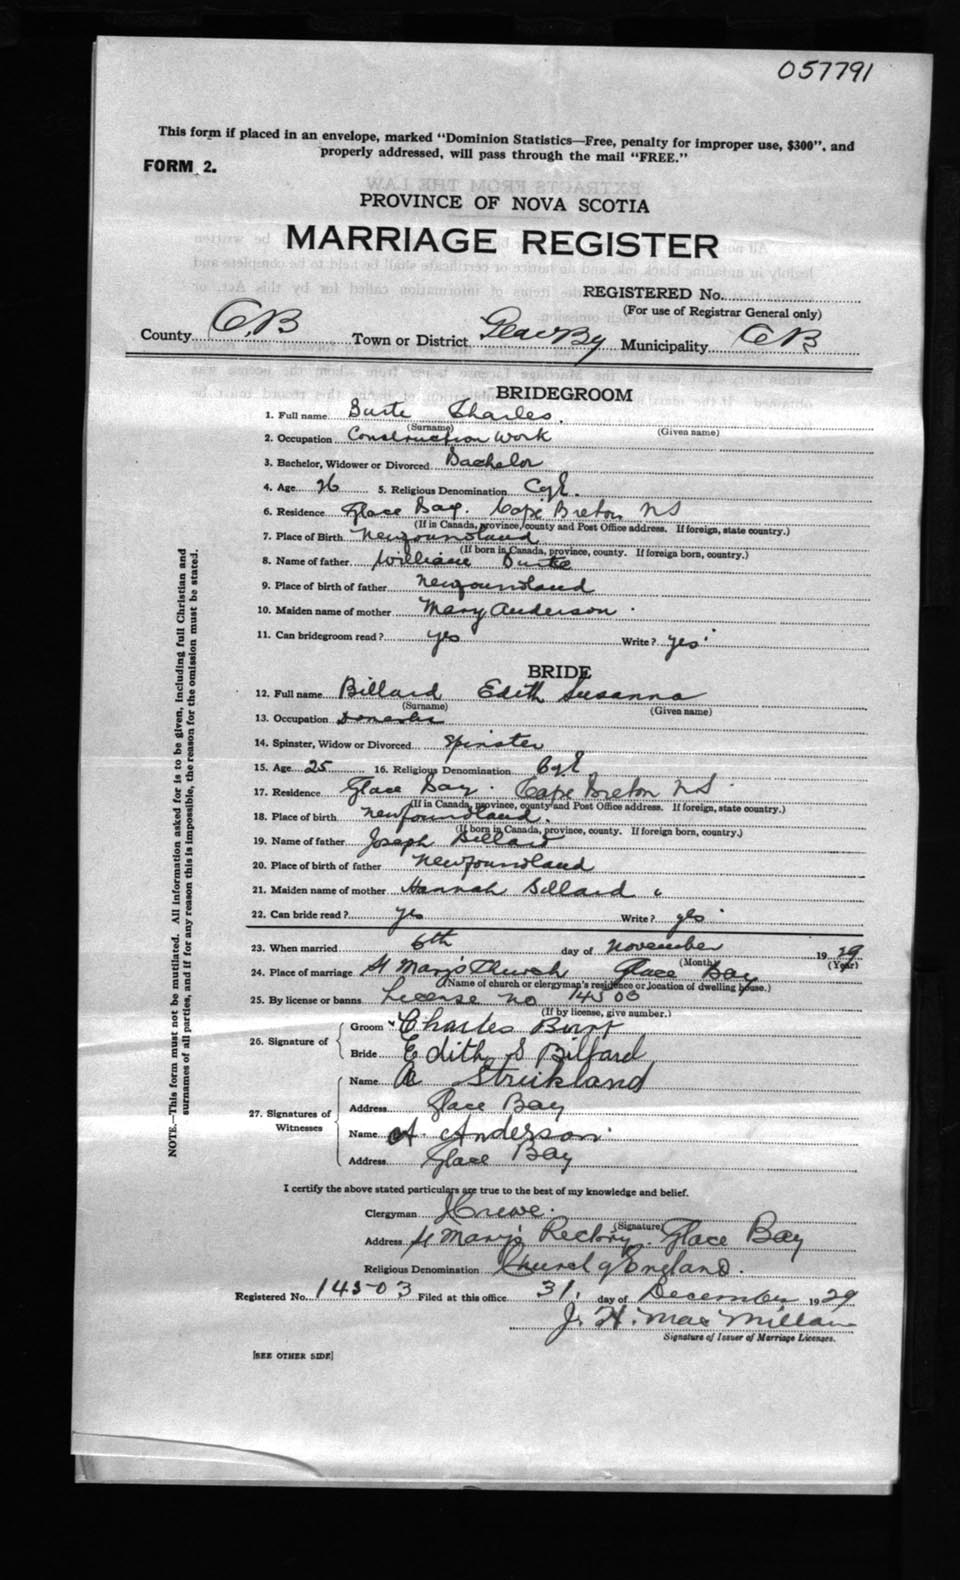 057791
This form if placed in an envelope, marked "Dominion Statistics—Free, penalty for improper use, $300", and
properly addressed, will pass through the mail "FREE."
FORM 2.
PROVINCE OF NOVA SCOTIA
MARRIAGE REGISTER
REGISTERED No.
(For use of Registrar General only)
County C.B Town or District Glace By Municipality C B
BRIDEGROOM
1. Full name Charles
(Surname) (Given name)
2. Occupation Construction Work
3. Bachelor, Widower or Divorced Bachelor
4. Age 26 5. Religious Denomination C of E.
6. Residence Glace Bay. Cape Breton NS
(If in Canada, province, county and Post Office address. If foreign, state country.)
7. Place of Birth Newfoundland
(If born in Canada, province, county. If foreign born, country.)
8. Name of father William
9. Place of birth of father Newfoundland
10. Maiden name of mother Mary Anderson
11. Can bridegroom read? yes Write? yes
BRIDE
12. Full name Billard Edith Susanna
(Surname) (Given name)
13. Occupation Domestic
14. Spinster, Widow or Divorced Spinster
15. Age 25 16. Religious Denomination C of E
17. Residence Glace Bay. Cape Breton NS
(If in Canada, province, county and Post Office address. If foreign, state country.)
18. Place of birth Newfoundland.
(If born in Canada, province, county. If foreign born, country.)
19. Name of father Joseph Billard
20. Place of birth of father Newfoundland
21. Maiden name of mother Hannah Billard
22. Can bride read? yes Write? yes
23. When married 6th day of November 1929
(Month) (Year)
24. Place of marriage St Mary's Church Glace Bay
(Name of church or clergyman's residence or location of dwelling house.)
25. By license or banns License no 14503
(If by license, give number.)
26. Signature of
Groom Charles Burt
Bride Edith S Billard
27. Signatures of Witnesses
Name Strickland
Address Glace Bay
Name A. Anderson
Address Glace Bay
I certify the above stated particulars are true to the best of my knowledge and belief.
Clergyman
(Signature)
Address St Mary's Rectory. Glace Bay
Religious Denomination Church of England.
Registered No. 14503 Filed at this office 31, day of December 1929
J. H. MacMillan
Signature of Issuer of Marriage Licenses.
[SEE OTHER SIDE]
NOTE.—This form must not be mutilated. All information asked for is to be given, including full Christian and
surnames of all parties, and if for any reason this is impossible, the reason for the omission must be stated.